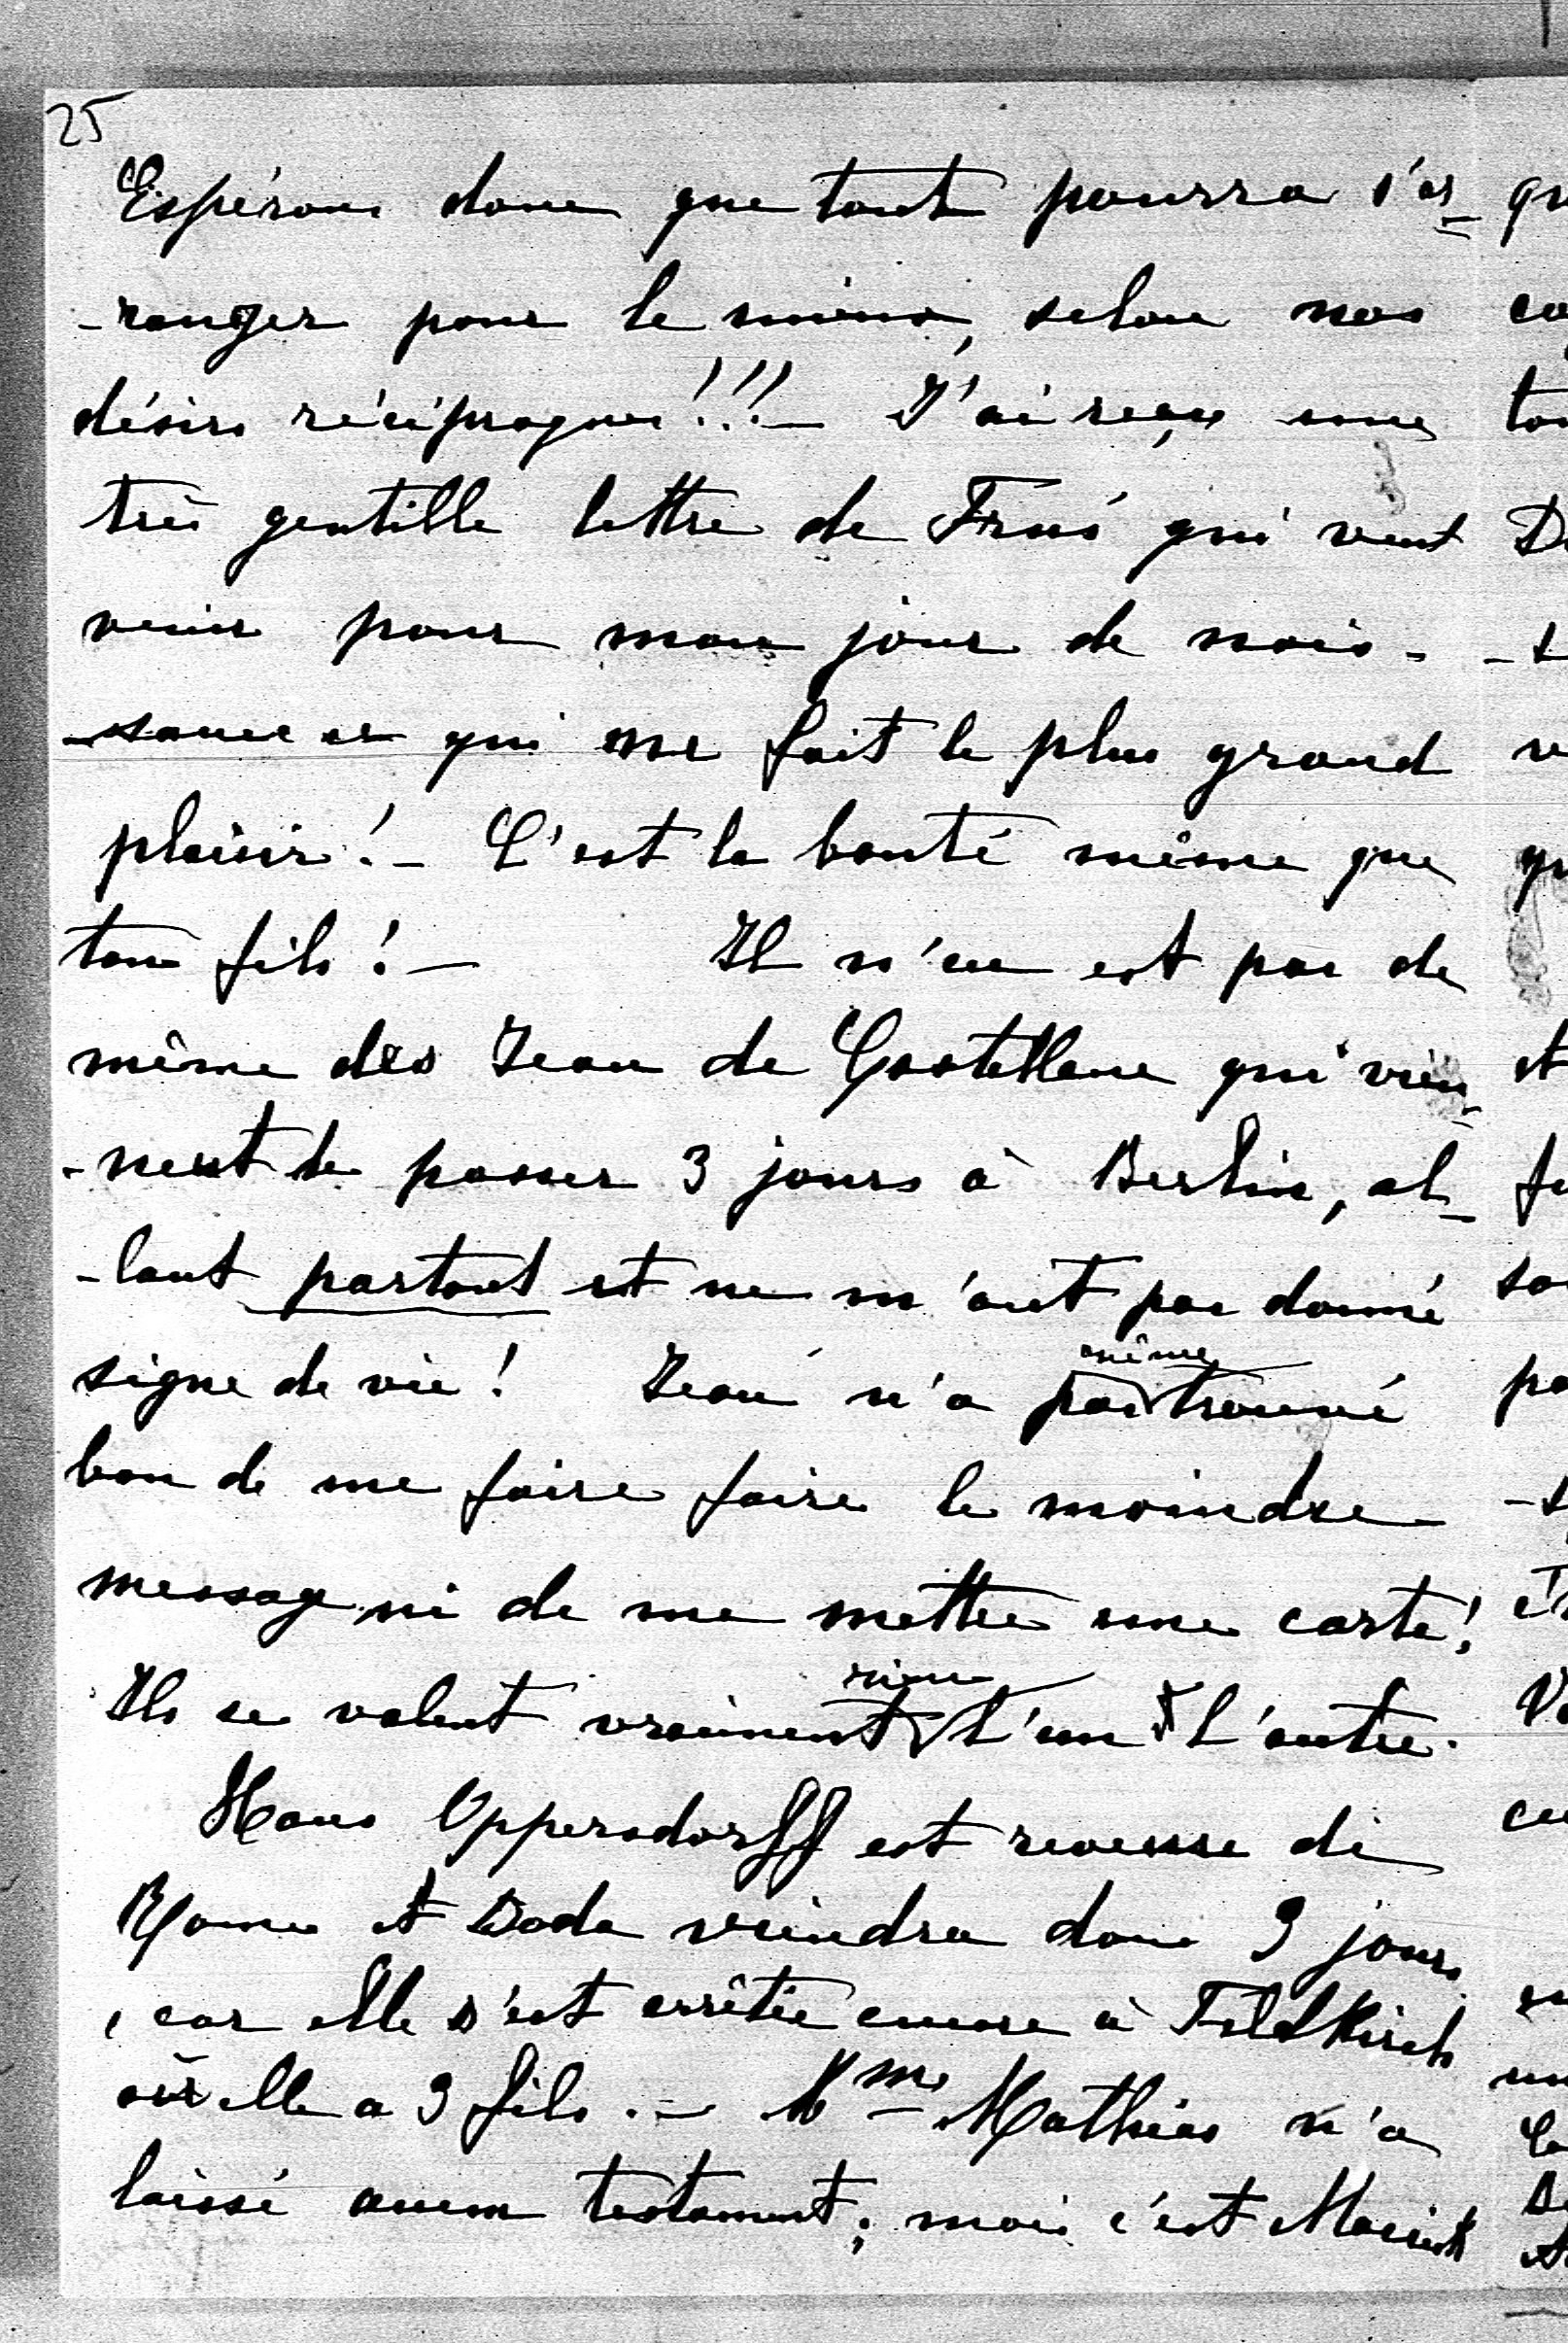 25
Espérons donc que tout pourra s'ar-
-ranger pour le mieux, selon nos
désirs réciproques!!! — J'ai reçu une
très gentille lettre de qui veut
venir pour mon jour de nais-
-sance ce qui me fait le plus grand
plaisir! — C'est la bonté même que
ton fils! — Il n'en est pas de
même des Jean de Castellane qui vien-
-nent de passer 3 jours à Berlin, al-
-lant partout et ne m'ont pas donné
signe de vie! Jean n'a pas même trouvé
bon de me faire faire le moindre
message ni de me mettre une carte!
Ils se valent vraiment l'un & l'autre.
Hans Oppersdorff est revenue de
Rome et Doda viendra donc 9 jours
, car elle s'est arrêtée encore à Feldkirch
où elle a 3 fils. — Mme Mathias n'a
laissé aucun testament; mais c'est